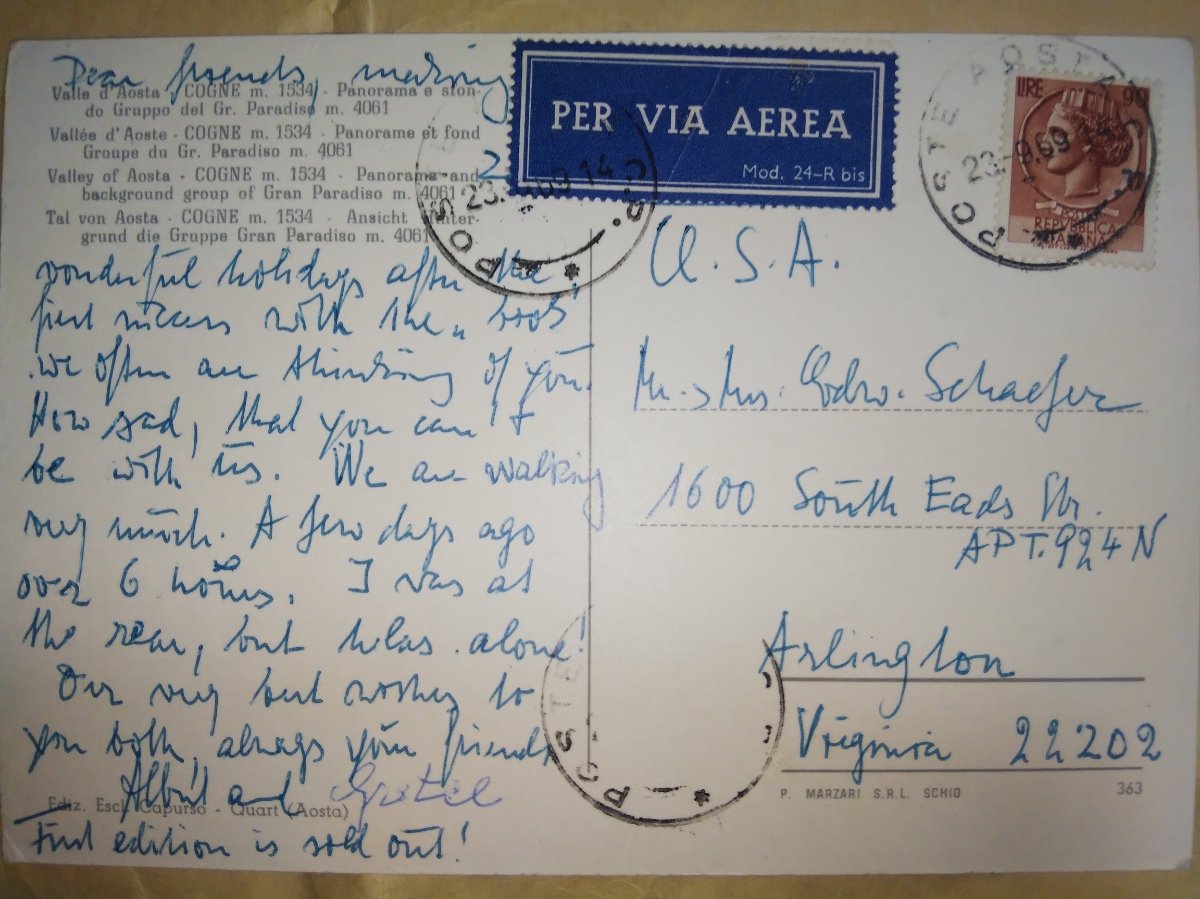 Dear friends, making
Valle d'Aosta - COGNE m. 1534 - Panorama e sfon-
do Gruppo del Gr. Paradiso m. 4061
Vallée d'Aoste - COGNE m. 1534 - Panorame et fond
Groupe du Gr. Paradiso m. 4061
Valley of Aosta - COGNE m. 1534 - Panorama and
background group of Gran Paradiso m. 4061
Tal von Aosta - COGNE m. 1534 - Ansicht
grund die Gruppe Gran Paradiso m. 4061
wonderful holidays after the
first success with the "book"
we often are thinking of you.
How sad, that you can't
be with us. We are walking
very much. A few days ago
over 6 hours. I was at
the rear, but helas alone!
Our very best wishes to
you both, always your friends
Albút and Gretel
Ediz. Escl. Capurso - Quart (Aosta)
First edition is sold out!
PER VIA AEREA
Mod. 24-R bis
POSTE AOSTA C.P.
23.9.69 14
LIRE 90
REPUBBLICA
ITALIANA
POSTE C.P.
23. 69 14
U.S.A.
Mr. & Mrs. Edw. Schaefer
1600 South Eads Str.
APT. 924 N
Arlington
Virginia 22202
P. MARZARI S.R.L. SCHIO
363
POSTE